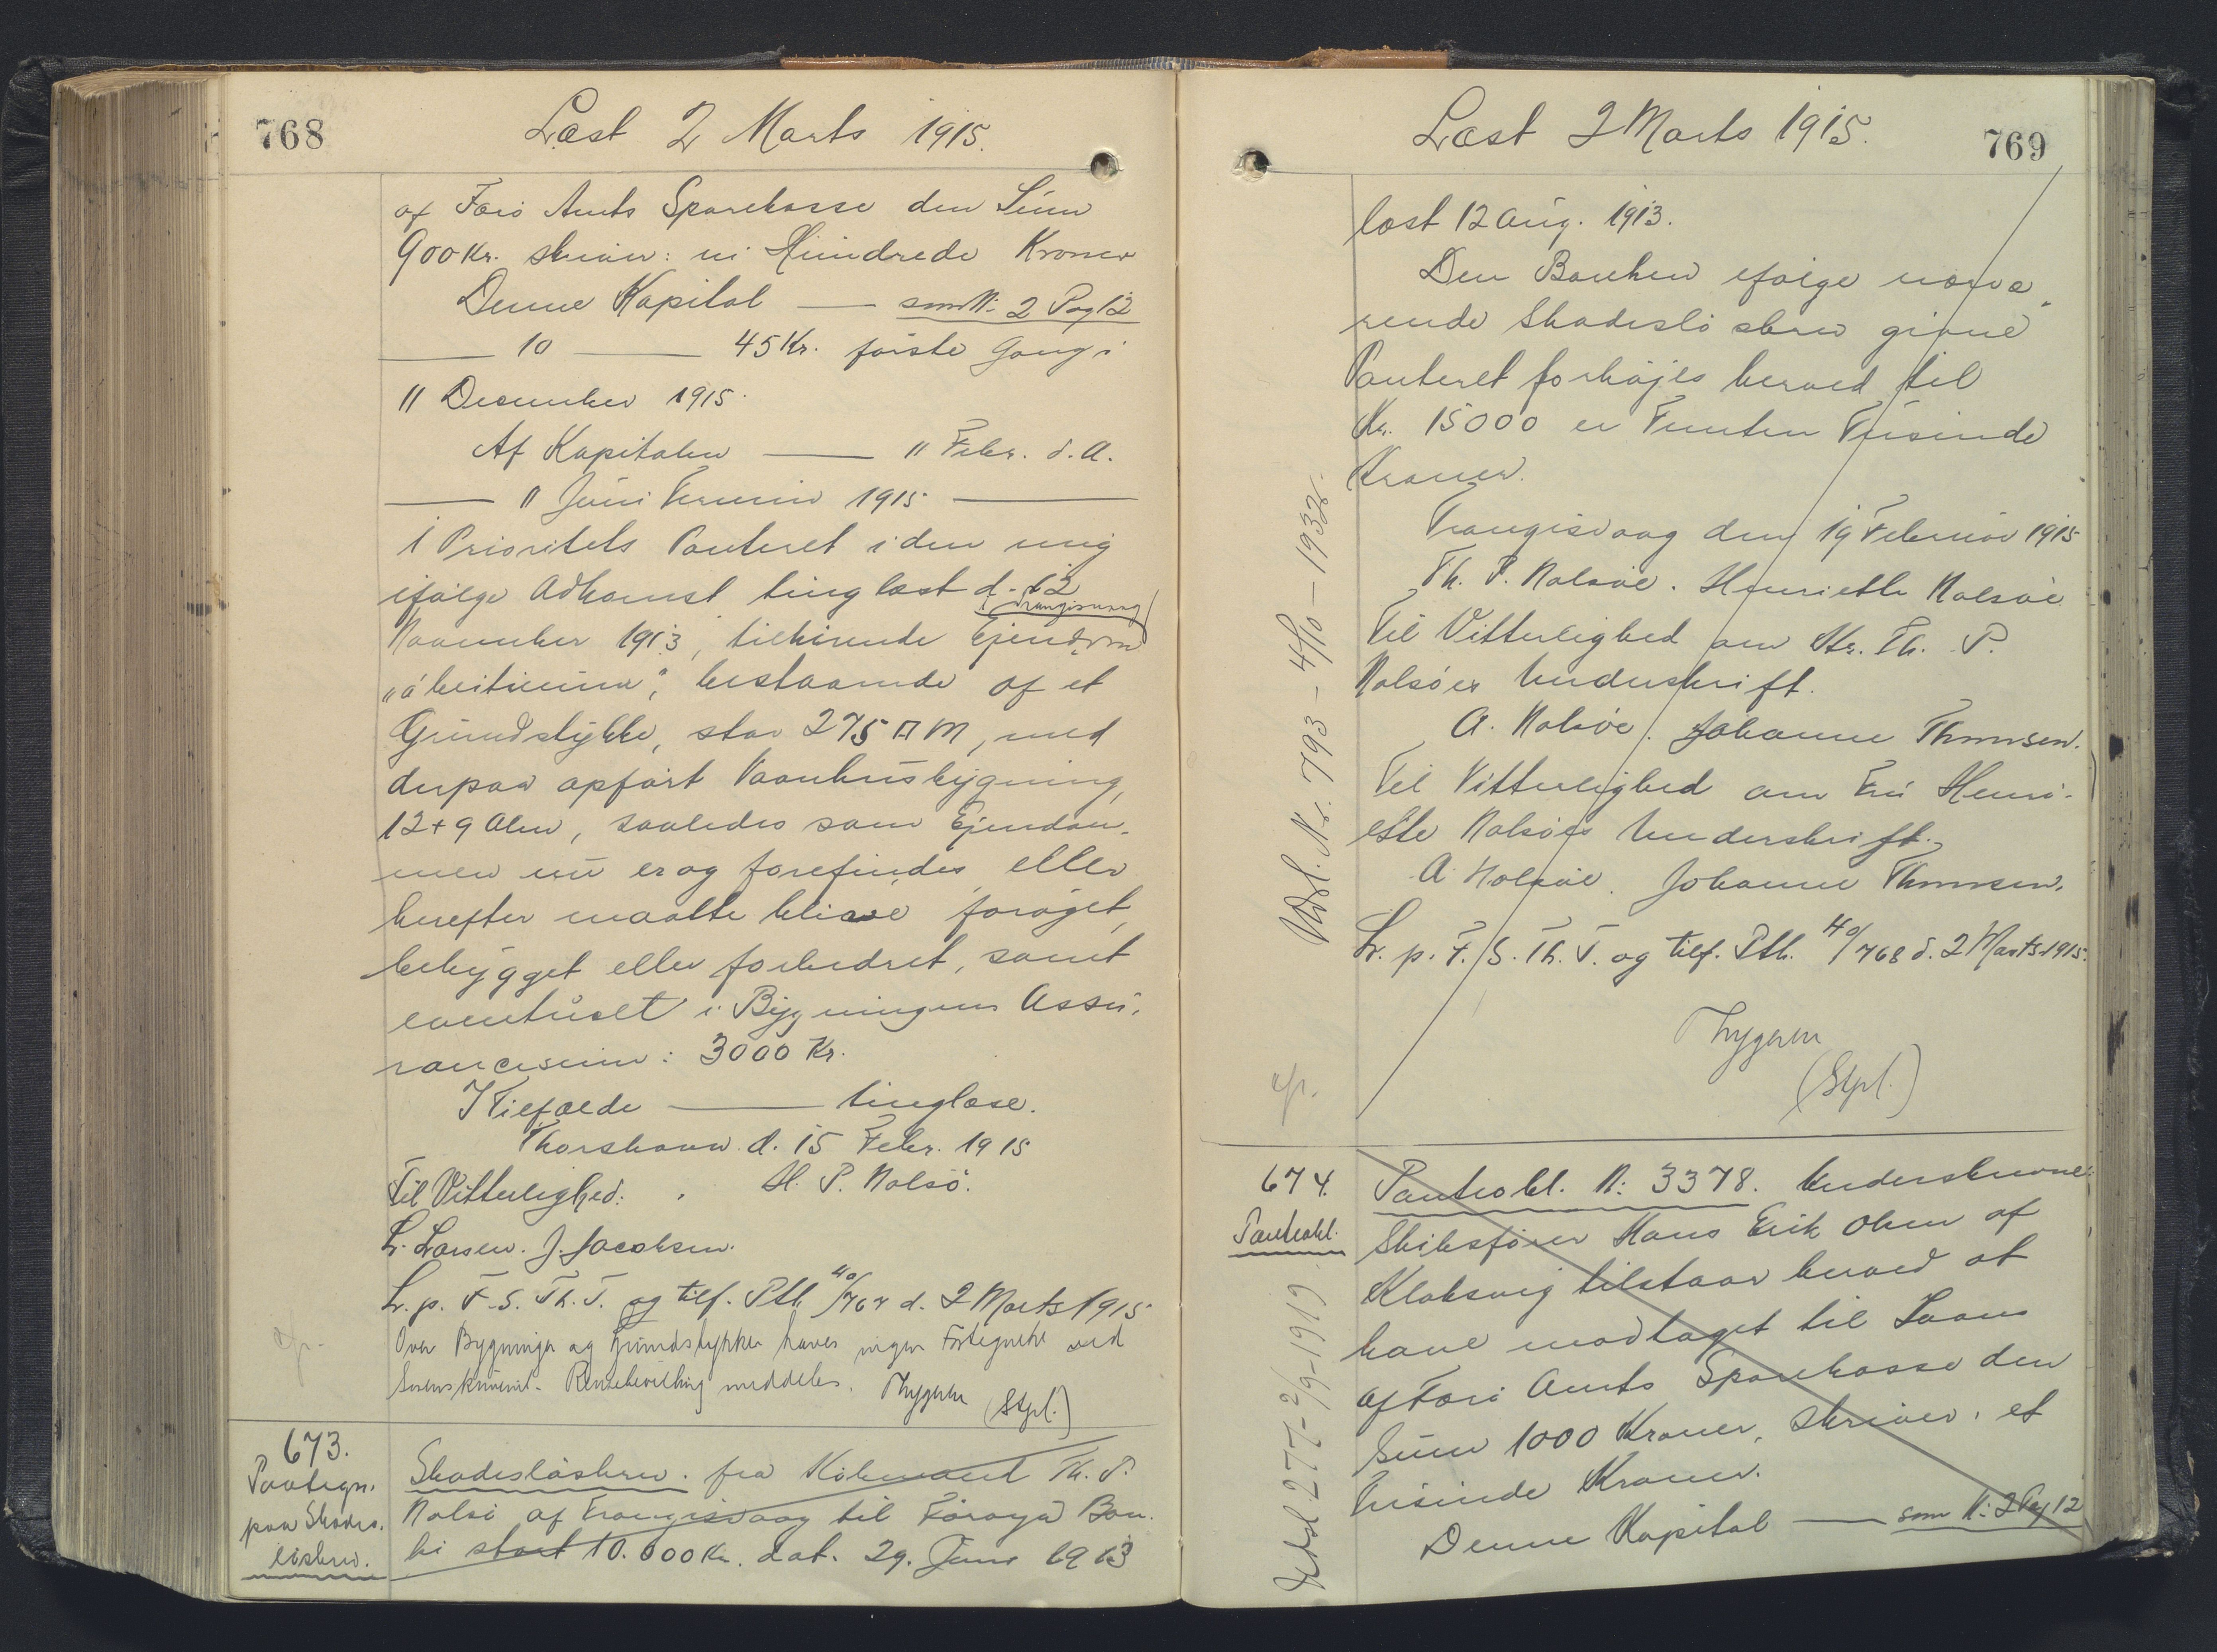 768
Læst 2 Marts 1915.
af Færø Amts Sparekasse den Sum
900 Kr. skriver: ni Hundrede Kroner
Denne Kapital — som N: 2 Pag 12
— 10 — 45 Kr. første Gang i
11 December 1915.
Af Kapitalen — 11 Febr. d. A.
— 11 Juni Termin 1915 —
1 Prioritets Panteret i den mig
ifølge Adkomst tinglæst d. 12
i Trangisvaag
November 1913, tilhørende Ejendom
bestaaende af et
Grundstykke, stor 275 □ M, med
derpaa opført Vaanhusbygning,
12 + 9 Alen, saaledes som Ejendom-
men nu er og forefindes eller
herefter maatte blive forøget,
bebygget eller forbedret, samt
eventuelt i Bygningens Assu-
rancesum: 3000 Kr.
I Tilfælde — tinglæse.
Thorshavn d. 15 Febr. 1915
Til Vitterlighed: H. P. Nolsø.
L. Larsen. J. Jacobsen.
L. p. F. S. Th. T. og tilf. Ptb. 40/767 d. 2 Marts 1915
Over Bygninger og Grundstykker haves ingen Fortegnelse ved
Sorenskriveriet. Rentebevilling meddeles. Thygesen (Stpl.)
673.
Paategn.
paa Skades-
løsbrev.
Skadesløsbrev fra Købmand Th. P.
Nolsø af Trangisvaag til Føroya Ban-
ki stort 10.000 Kr. dat. 29. Juni 1913
769
Læst 2 Marts 1915.
læst 12 Aug. 1913.
Den Banken ifølge nærvæ-
rende Skadesløsbrev givne
Panteret forhøjes herved til
Kr. 15000 er Femten Tusinde
Kroner.
Trangisvaag den 19 Februar 1915
Th. P. Nolsøe. Henriette Nolsøe
Til Vitterlighed om Hr. Th. P.
Nolsøes Underskrift.
A. Nolsøe. Johanne Thomsen.
Til Vitterlighed om Fru Henri-
ette Nolsøes Underskrift.
A. Nolsøe. Johanne Thomsen.
L. p. F. S. Th. T. og tilf. Ptb. 40/768 d. 2 Marts 1915.
Thygesen
(Stpl.)
Udsl. Nr. 793 - 4/10 - 1932.
674.
Panteobl.
Panteobl. N: 3378. Underskrevne
Skibsfører Hans Erik Olsen af
Klaksvig tilstaar herved at
have modtaget til Laans
af Færø Amts Sparekasse den
Sum 1000 Kroner, skriver, et
Tusinde Kroner.
Denne Kapital — som N: 2 Pag 12